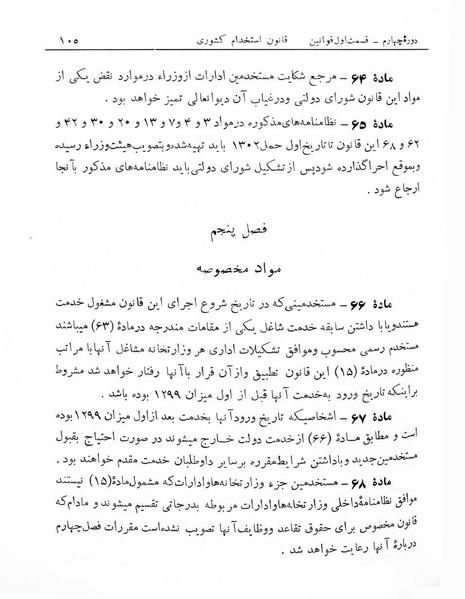 دورهٔ چهارم - قسمت اول قوانین قانون استخدام کشوری ۱۰۵
مادهٔ ۶۴ - مرجع شکایت مستخدمین ادارات از وزراء در موارد نقض یکی از
مواد این قانون شورای دولتی و در غیاب آن دیوانعالی تمیز خواهد بود .
مادهٔ ۶۵ - نظامنامه‌های مذکوره در مواد ۳ و ۴ و ۷ و ۱۳ و ۲۰ و ۳۰ و ۴۲ و
۶۲ و ۶۸ این قانون تا تاریخ اول حمل ۱۳۰۲ باید تهیه شده و بتصویب هیئت وزراء رسیده
و بموقع اجرا گذارده شود پس از تشکیل شورای دولتی باید نظامنامه‌های مذکور بآنجا
ارجاع شود .
فصل پنجم
مواد مخصوصه
مادهٔ ۶۶ - مستخدمینی که در تاریخ شروع اجرای این قانون مشغول خدمت
هستند و یا با داشتن سابقه خدمت شاغل یکی از مقامات مندرجه در مادهٔ (۶۳) میباشند
مستخدم رسمی محسوب و موافق تشکیلات اداری هر وزارتخانه مشاغل آنها با مراتب
منظوره در مادهٔ (۱۵) این قانون تطبیق و از آن قرار با آنها رفتار خواهد شد مشروط
بر اینکه تاریخ ورود به‌خدمت آنها قبل از اول میزان ۱۲۹۹ بوده باشد .
مادهٔ ۶۷ - اشخاصیکه تاریخ ورود آنها بخدمت بعد از اول میزان ۱۲۹۹ بوده
است و مطابق مادهٔ (۶۶) از خدمت دولت خارج میشوند در صورت احتیاج بقبول
مستخدمین جدید و با داشتن شرایط مقرره بر سایر داوطلبان خدمت مقدم خواهند بود .
مادهٔ ۶۸ - مستخدمین جزء وزارتخانه‌ها و ادارات که مشمول مادهٔ (۱۵) نیستند
موافق نظامنامهٔ داخلی وزارتخانه‌ها و ادارات مربوطه بدرجاتی تقسیم میشوند و مادام که
قانون مخصوص برای حقوق تقاعد و وظایف آنها تصویب نشده است مقررات فصل چهارم
دربارهٔ آنها رعایت خواهد شد .